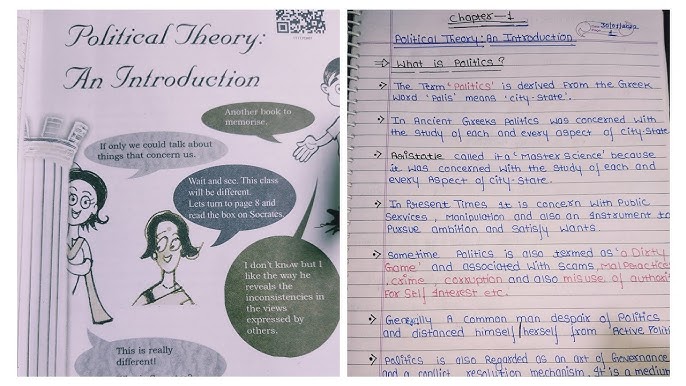 Political Theory:
An Introduction
Another book to
memorise.
If only we could talk about
things that concern us.
Wait and see. This class
will be different.
Lets turn to page 8 and
read the box on Socrates.
I don't know but I
like the way he
reveals the
inconsistencies in
the views
expressed by
others.
This is really
different!
Chapter-1
Political Theory: An Introduction
⇒ What is Politics?
→ The Term 'Politics' is derived From the Greek
word 'Polis' means 'city-state'.
→ In Ancient Greeks Politics was concerned with
the study of each and every aspect of city-state
→ Aristatle called it a 'Master Science' because
it was concerned with the study of each and
every Aspect of city-state.
→ In Present Times it is concern with Public
Services, Manipulation and also an instrument to
Pursue ambition and Satisfy wants.
→ Sometime Politics is also termed as 'a Dirty
Game' and associated with scams, malpractices
, crime, corruption and also misuse of authori
For Self Interest etc.
→ Generally A common man despair of Politics
and distanced himself/herself from 'Active Polit
→ Politics is also Regarded as an art of Governance
and a conflict resolution mechanism. It is a medium